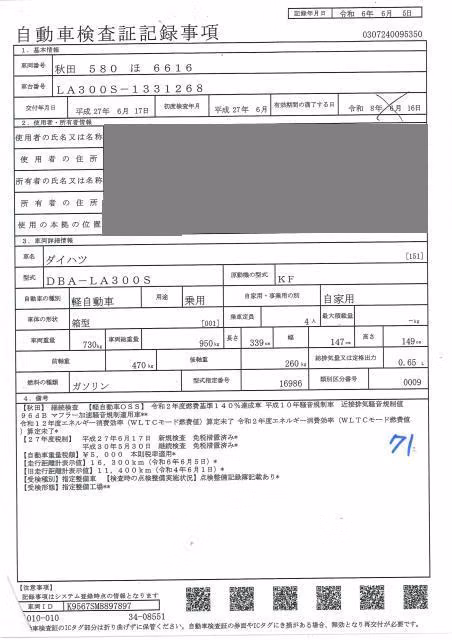 記録年月日 令和 6年 6月 5日
自動車検査証記録事項 0307240095350
1．基本情報
車両番号 秋田 580 ほ 6616
車台番号 LA300S-1331268
交付年月日 平成 27年 6月 17日 初度検査年月 平成 27年 6月 有効期間の満了する日 令和 8年 6月 16日
2．使用者・所有者情報
使用者の氏名又は名称
使用者の住所
所有者の氏名又は名称
所有者の住所
使用の本拠の位置
3．車両詳細情報
車名 ダイハツ [151]
型式 DBA-LA300S 原動機の型式 KF
自動車の種別 軽自動車 用途 乗用 自家用・事業用の別 自家用
車体の形状 箱型 [001] 乗車定員 4人 最大積載量 -kg
車両重量 730kg 車両総重量 950kg 長さ 339cm 幅 147cm 高さ 149cm
前軸重 470kg 後軸重 260kg 総排気量又は定格出力 0.65 L
燃料の種類 ガソリン 型式指定番号 16986 類別区分番号 0009
4．備考
【秋田】 継続検査 【軽自動車OSS】 令和2年度燃費基準140%達成車 平成10年騒音規制車 近接排気騒音規制値
96dB マフラー加速騒音規制適用車**
令和12年度エネルギー消費効率(WLTCモード燃費値)算定未了 令和2年度エネルギー消費効率(WLTCモード燃費値
)算定未了*
【27年度税制】 平成27年6月17日 新規検査 免税措置済み*
平成30年5月30日 継続検査 免税措置済み*
【自動車重量税額】￥5,000 本則税率適用*
【走行距離計表示値】16,300km(令和6年6月5日)*
【旧走行距離計表示値】11,400km(令和4年6月1日)*
【受検種別】指定整備車 【検査時の点検整備実施状況】点検整備記録簿記載あり*
【受検形態】指定整備工場**
71
【注意事項】
記録事項はシステム登録時点の情報となります
車両ID K9567SM8897897
010-010 34-08551
自動車検査証のICタグ部分は折り曲げずに保管ください。自動車検査証の券面やICタグにき損がある場合、無効となり再交付が必要です。